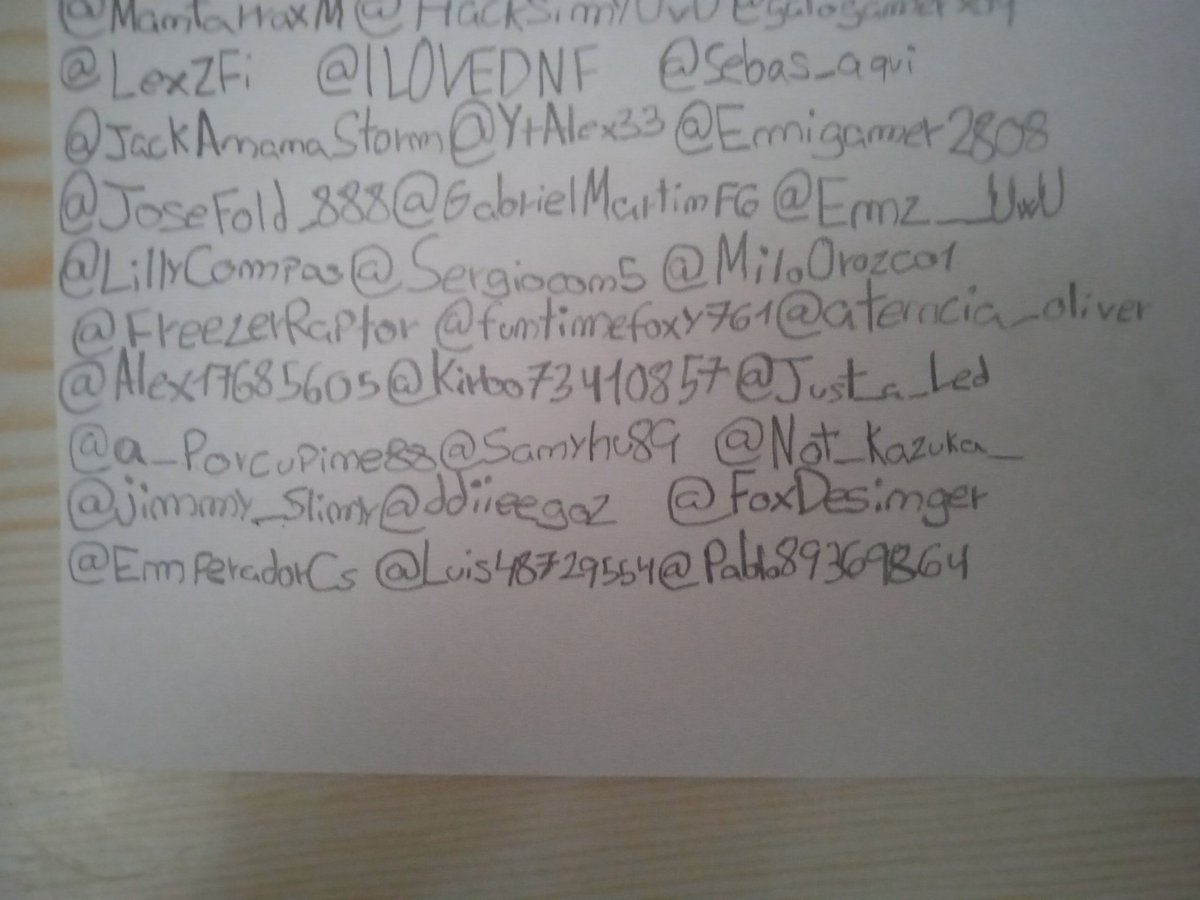 @LexZFi @ILOVEDNF @Sebas_aqui
@JackAmamaStorm @YtAlex33 @Ermigamer2808
@JoseFold_888 @GabrielMartimFG @Ermz__UwU
@LillyCompas @Sergiocom5 @MiloOrozco1
@FreezerRaptor @funtimefoxy761 @atencia_oliver
@Alex17685605 @Kirbo73410857 @Just_a_Led
@a_Porcupime88 @Samyhu89 @Not_Kazuka_
@jimmy_Slimy @ddiieegoz @FoxDesimger
@EmperadorCs @Luis48729554 @Pablo89369864